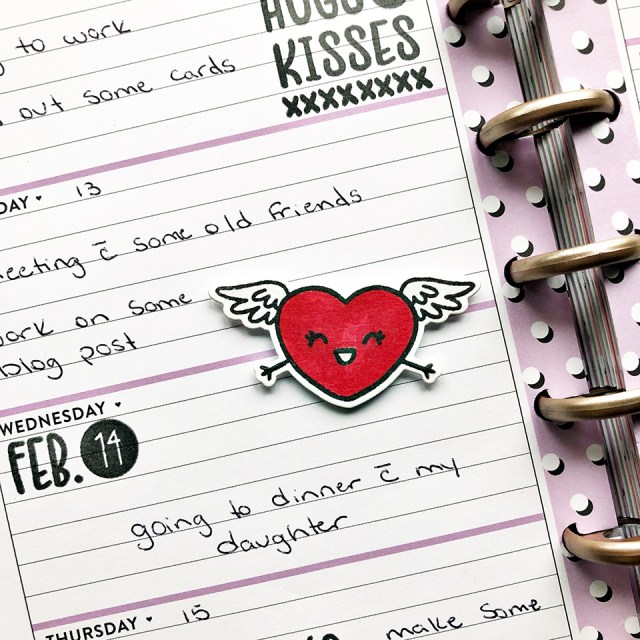 HUGS
to work
KISSES
out some cards
XXXXXXXX
DAY ♥ 13
meeting c̄ some old friends
work on some
blog post
WEDNESDAY ♥
FEB. 14
going to dinner c̄ my
daughter
THURSDAY ♥ 15
make some